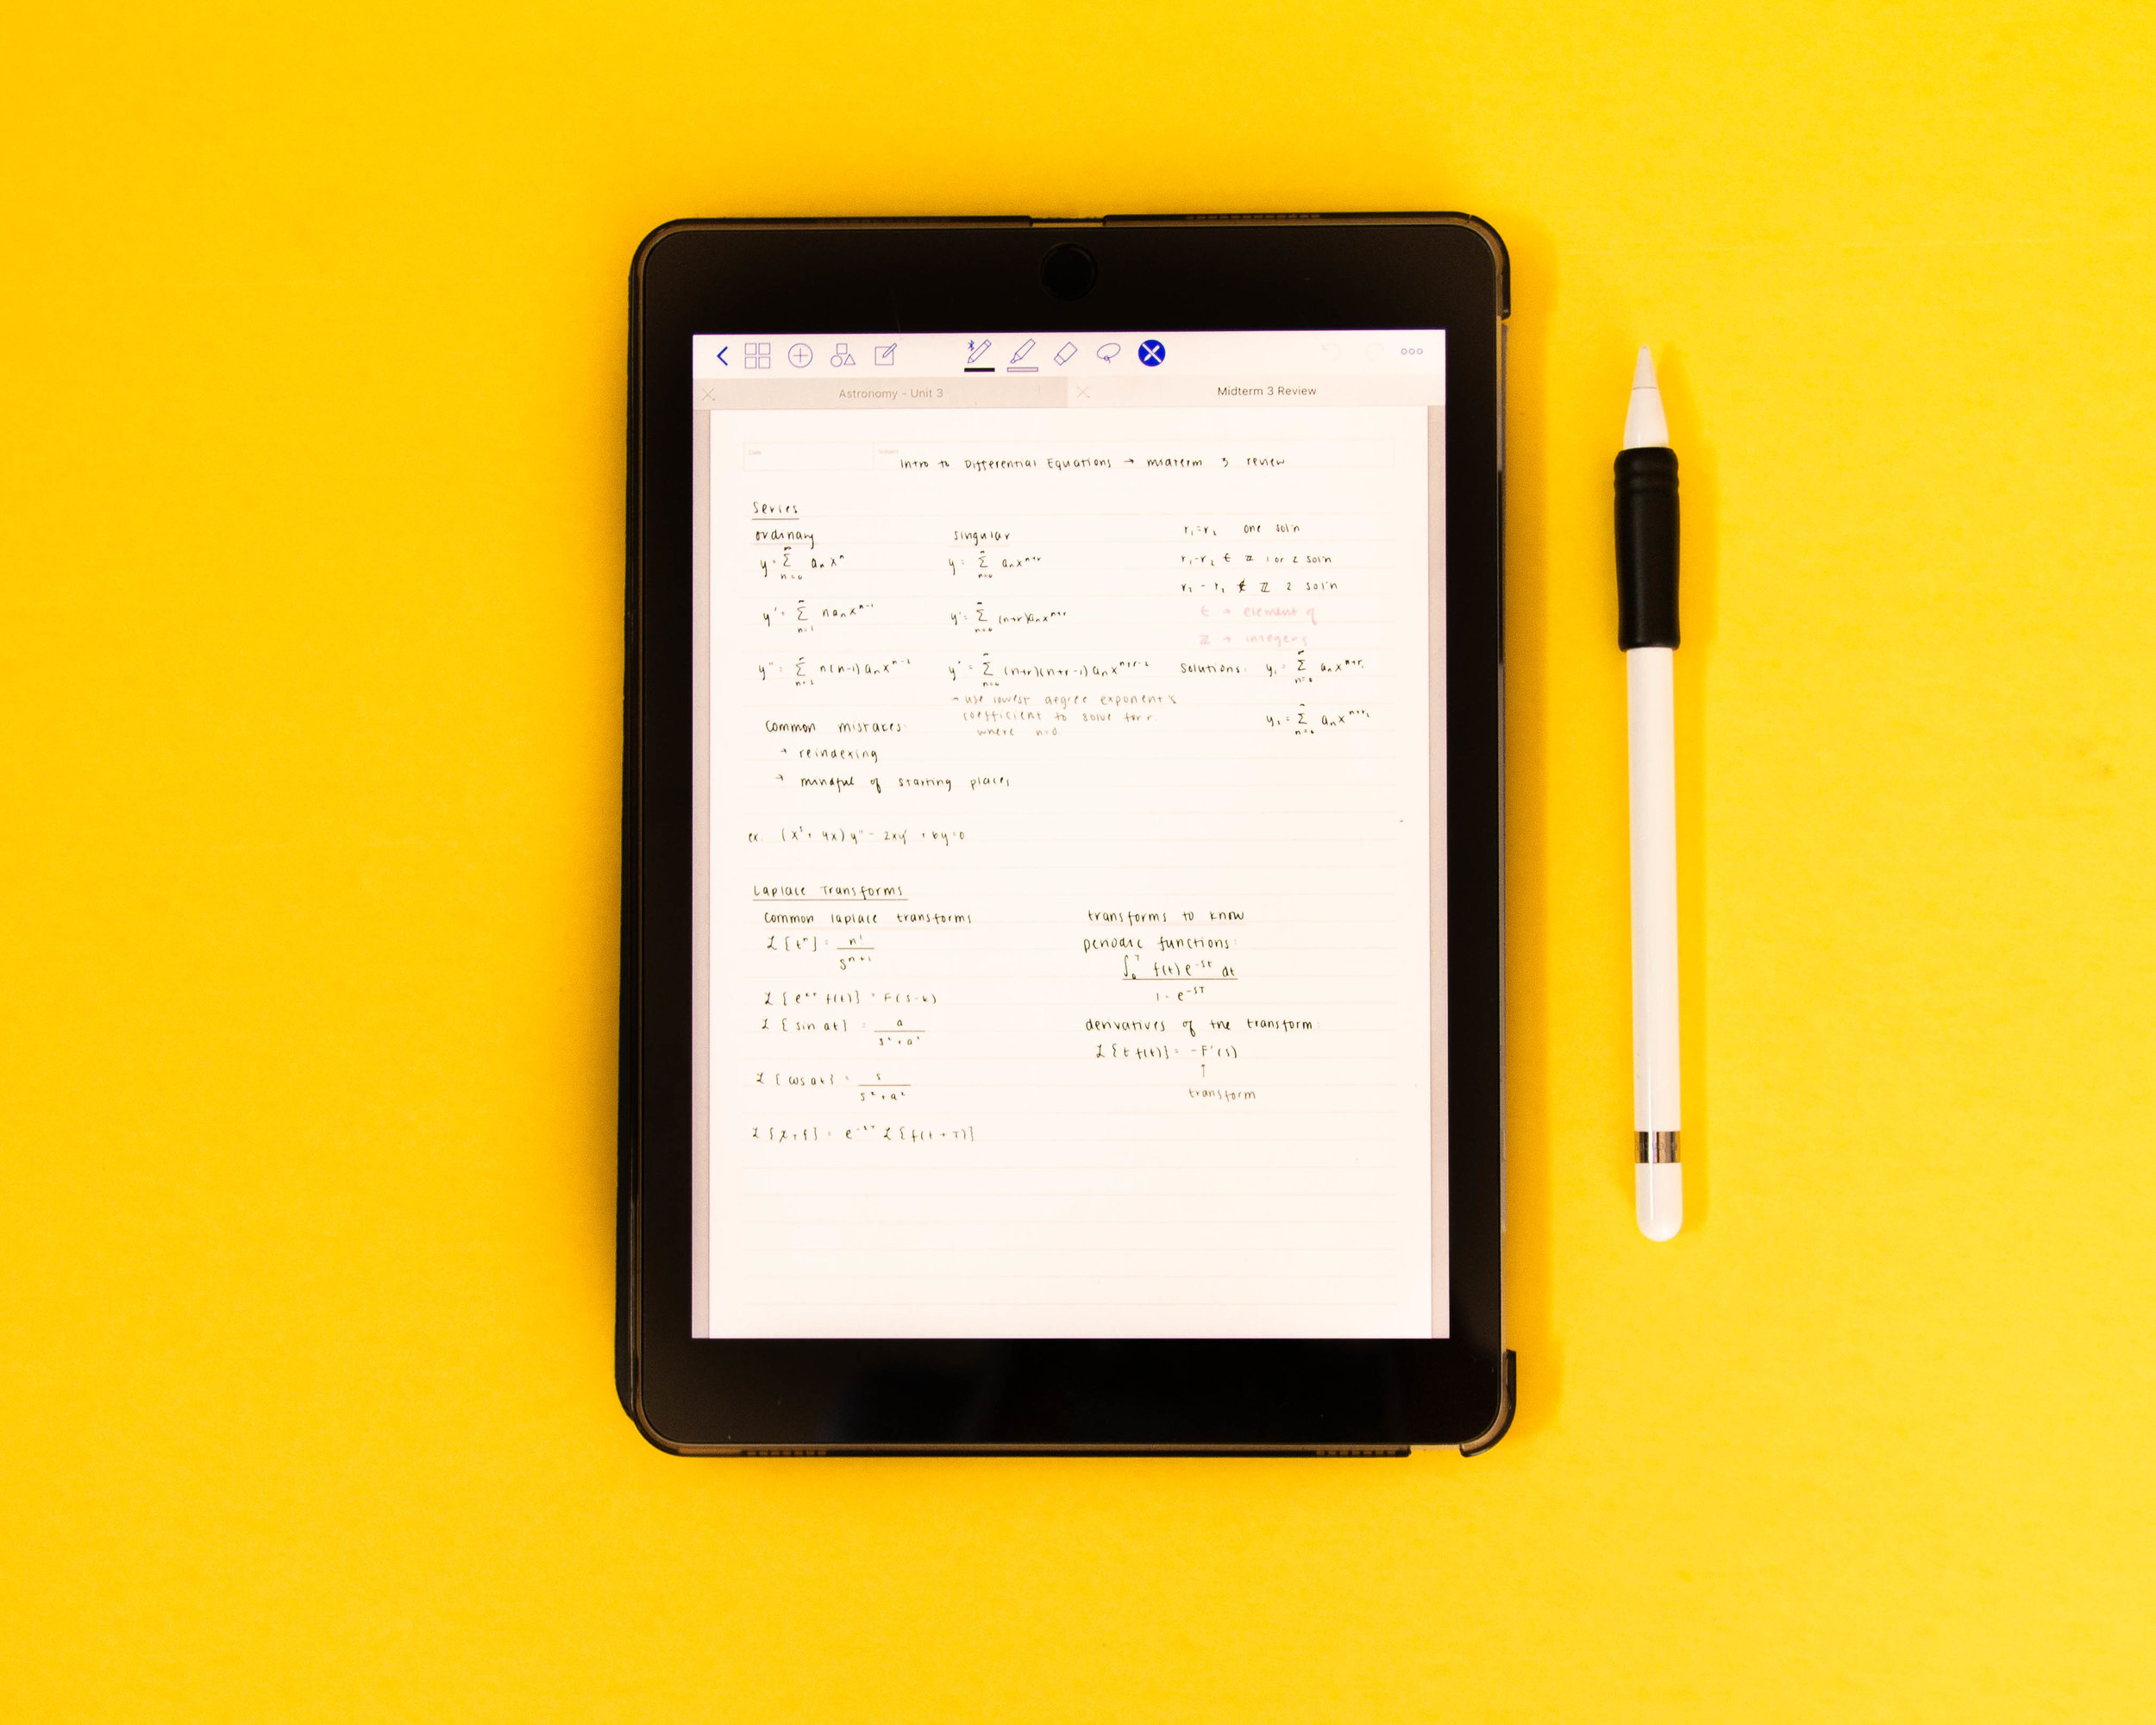 Astronomy - Unit 3
Midterm 3 Review
Date
Subject
Intro to Differential Equations → midterm 3 review
Series
ordinary
y = ∞Σn=0 aₙxⁿ
y' = ∞Σn=1 naₙxⁿ⁻¹
y'' = ∞Σn=2 n(n-1)aₙxⁿ⁻²
Common mistakes:
→ reindexing
→ mindful of starting places
singular
y = ∞Σn=0 aₙxⁿ⁺ʳ
y' = ∞Σn=0 (n+r)aₙx
y'' = ∞Σn=0 (n+r)(n+r-1)aₙxⁿ⁺ʳ⁻²
→ use lowest degree exponent's
coefficient to solve for r
where n=0
r₁=r₂ one sol'n
r₁-r₂ ∈ ℤ 1 or 2 sol'n
∉ ℤ 2 sol'n
∈ → element of
ℤ → integers
Solutions: y₁ = ∞Σn=0 aₙxⁿ⁺ʳ¹
y₂ = ∞Σn=0 aₙxⁿ⁺ʳ²
ex. y'' - 2xy' + 6y=0
Laplace Transforms
Common laplace transforms
ℒ{tⁿ} = n!/sⁿ⁺¹
ℒ{sin at} = a/(s²+a²)
ℒ{cos at} = s/(s²+a²)
transforms to know
periodic functions:
∫₀ᵀ f(t)e⁻ˢᵗ dt
1 - e⁻ˢᵀ
derivatives of the transform:
ℒ{t f(t)} = -F'(s)
↑
transform